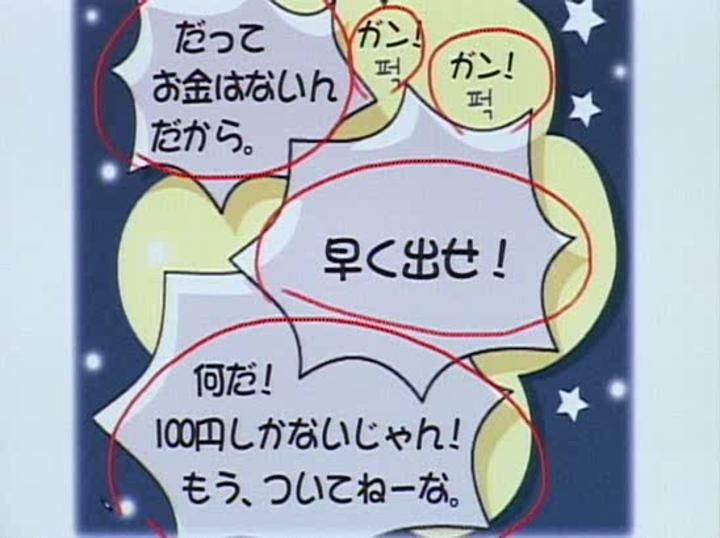 だって
お金はないん
だから。
ガン!
퍽
ガン!
퍽
早く出せ!
何だ!
100円しかないじゃん!
もう、ついてねーな。